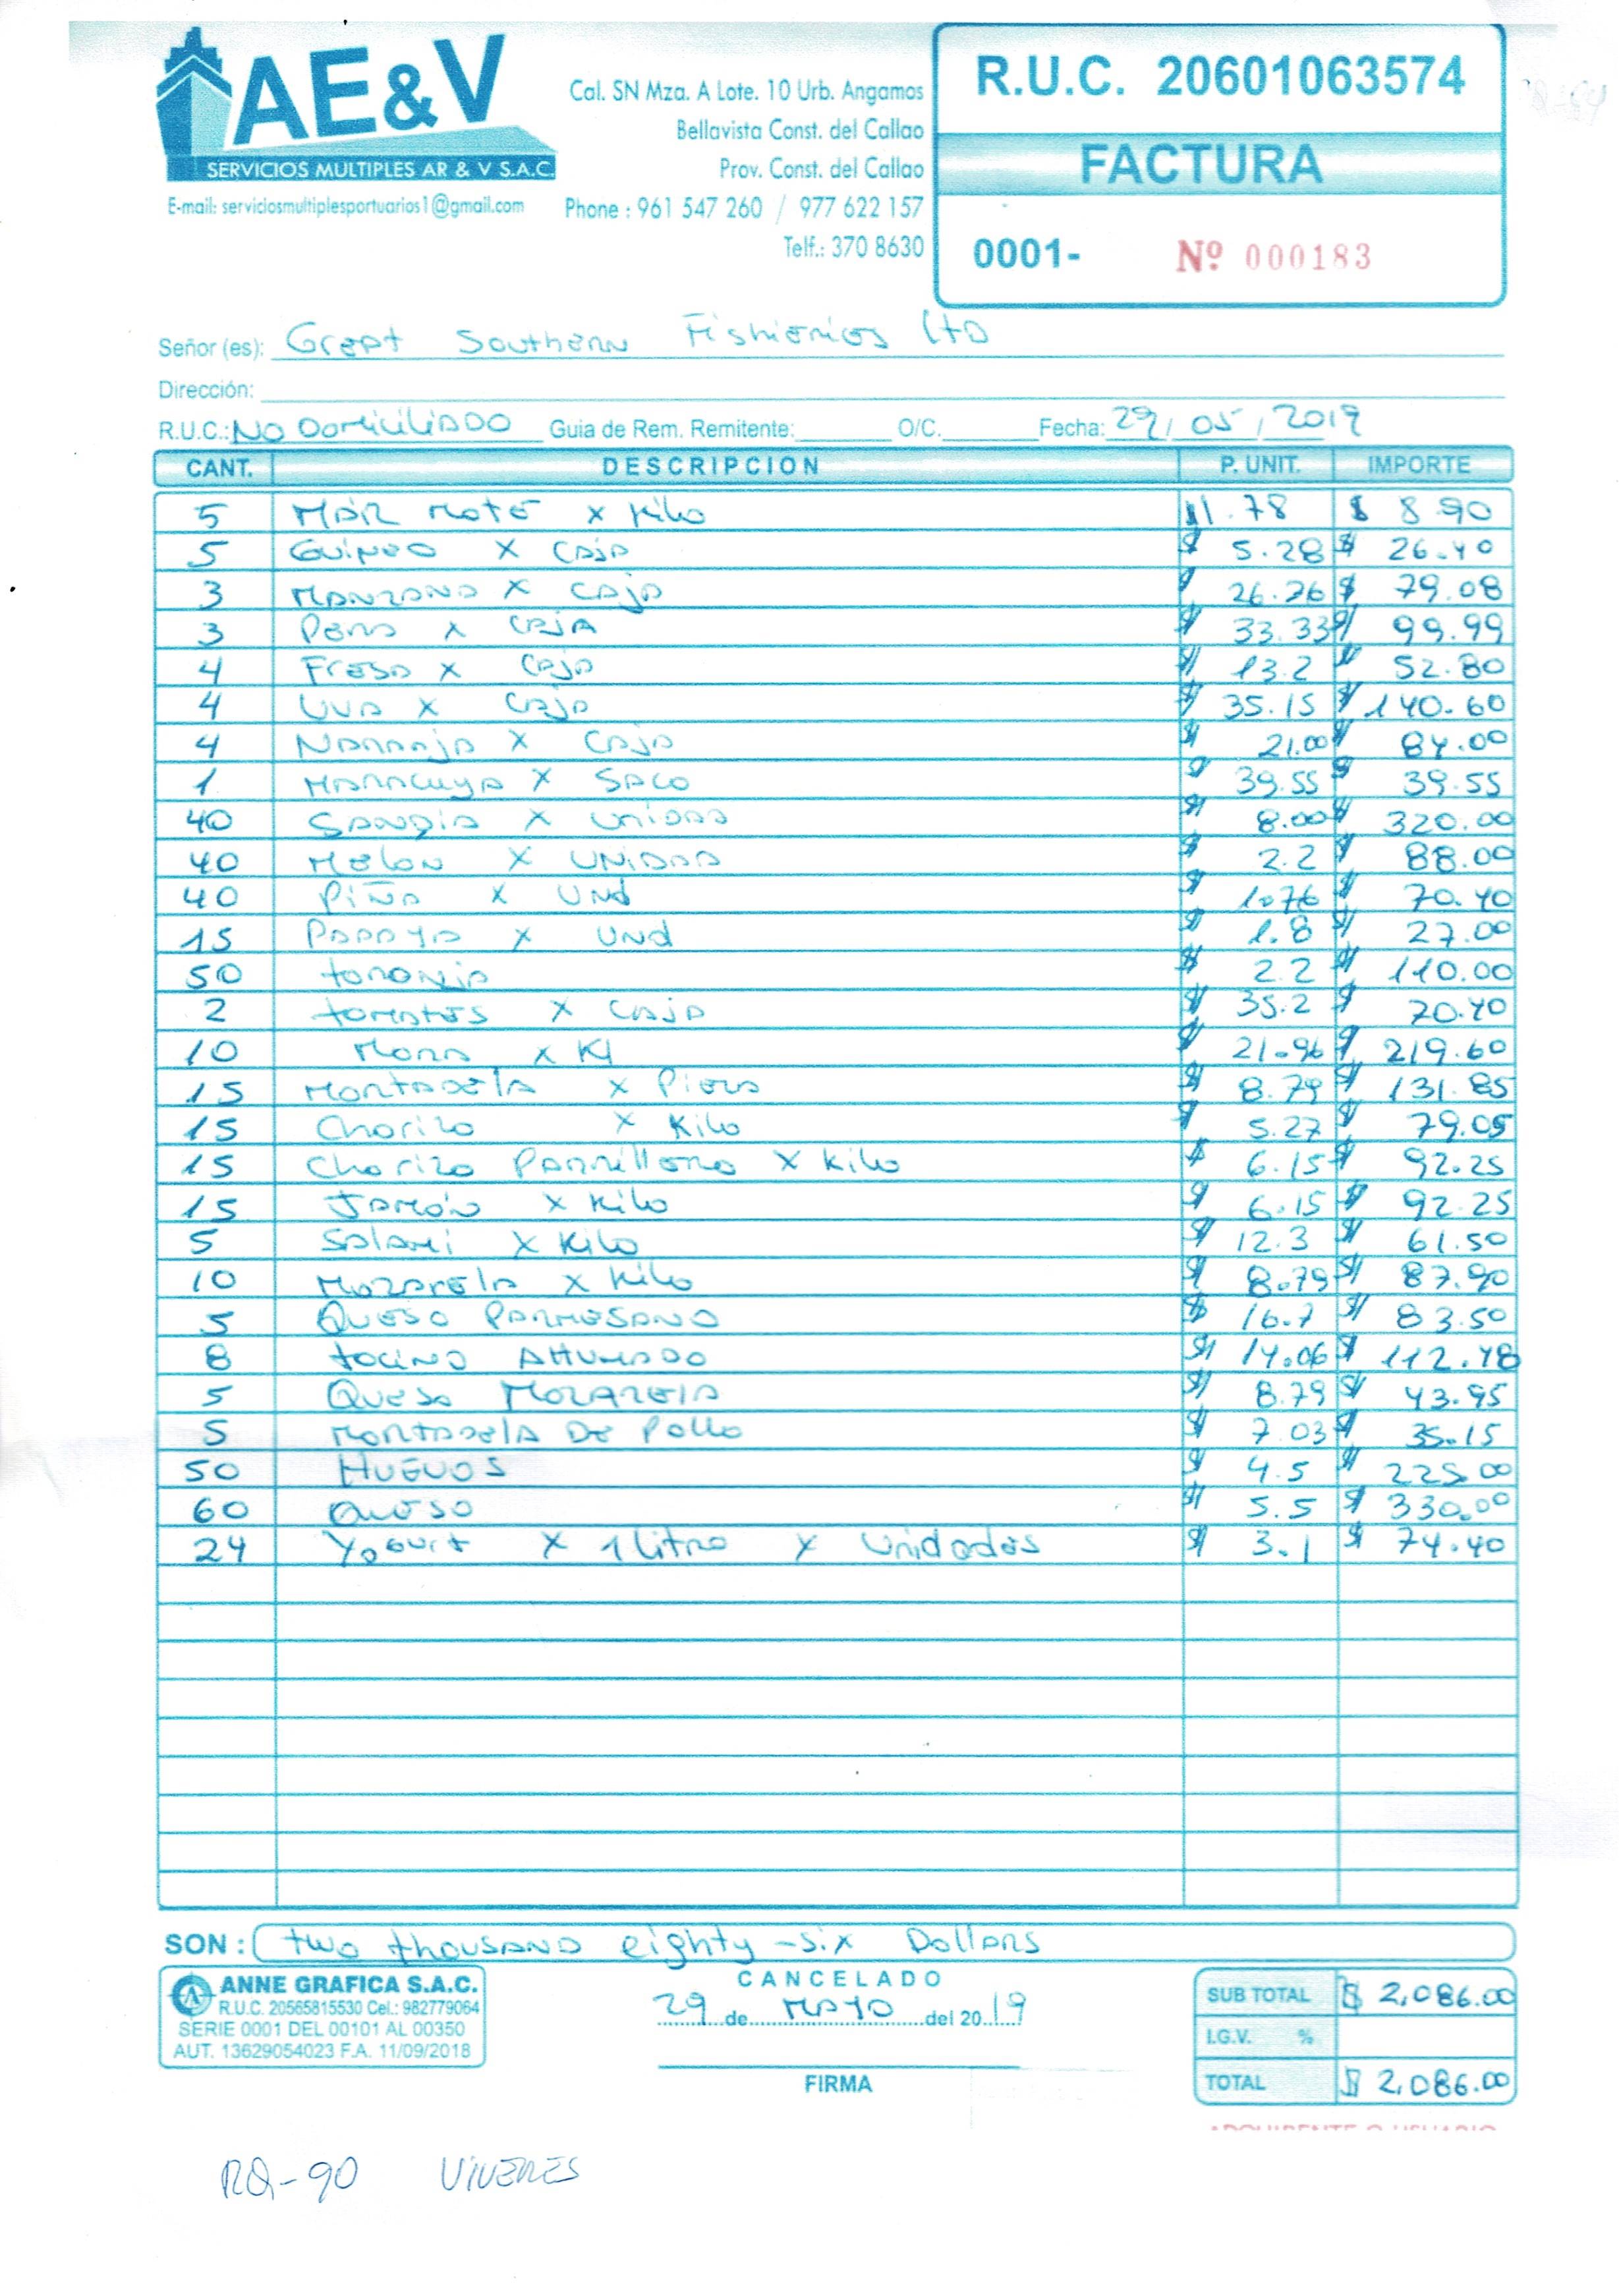 AE&V
SERVICIOS MULTIPLES AR & V S.A.C.
E-mail: serviciosmultiplesportuarios1@gmail.com
Cal. SN Mza. A Lote. 10 Urb. Angamos
Bellavista Const. del Callao
Prov. Const. del Callao
Phone : 961 547 260 / 977 622 157
Telf.: 370 8630
R.U.C. 20601063574
FACTURA
0001- Nº 000183
Señor (es): Great Southern Fishieries LtD
Dirección:
R.U.C.: No Domiciliado Guia de Rem. Remitente: O/C. Fecha: 29/05/2019
CANT. DESCRIPCION P. UNIT. IMPORTE
5 MAIZ Mote x Kilo $1.78 $ 8.90
5 Guineo x Caja $ 5.28 $ 26.40
3 Manzana x Caja $ 26.26 $ 79.08
3 Pera x Caja $ 33.33 $ 99.99
4 Fresa x Caja $ 13.2 $ 52.80
4 Uva x Caja $ 35.15 $ 140.60
4 Naranja x Caja $ 21.00 $ 84.00
1 Maracuya x Saco $ 39.55 $ 39.55
40 Sandia x unidad $ 8.00 $ 320.00
40 Melon x UNidad $ 2.2 $ 88.00
40 Piña x Und $ 1.76 $ 70.40
15 Papaya x Und $ 1.8 $ 27.00
50 toronja $ 2.2 $ 110.00
2 tomates x Caja $ 35.2 $ 70.40
10 Mora x Kl $ 21.96 $ 219.60
15 Mortadela x Pieza $ 8.79 $ 131.85
15 Chorizo x Kilo $ 5.27 $ 79.05
15 Chorizo Parrillero x Kilo $ 6.15 $ 92.25
15 Jamón x Kilo $ 6.15 $ 92.25
5 Salami x Kilo $ 12.3 $ 61.50
10 Mozarela x Kilo $ 8.79 $ 87.90
5 Queso Parmesano $ 16.7 $ 83.50
8 tocino AHumado $ 14.06 $ 112.48
5 Queso Mozarela $ 8.79 $ 43.95
5 Mortadela De Pollo $ 7.03 $ 35.15
50 HUEVOS $ 4.5 $ 225.00
60 Queso $ 5.5 $ 330.00
24 Yogurt x 1 litro x Unidades $ 3.1 $ 74.40
SON : two thousand eighty-six Dollars
ANNE GRAFICA S.A.C.
R.U.C. 20565815530 Cel.: 982779064
SERIE 0001 DEL 00101 AL 00350
AUT. 13629054023 F.A. 11/09/2018
CANCELADO
29 de MAYO del 2019
FIRMA
SUB TOTAL $ 2,086.00
I.G.V. %
TOTAL $ 2,086.00
ADQUIRENTE O USUARIO
RQ-90 VIVERES